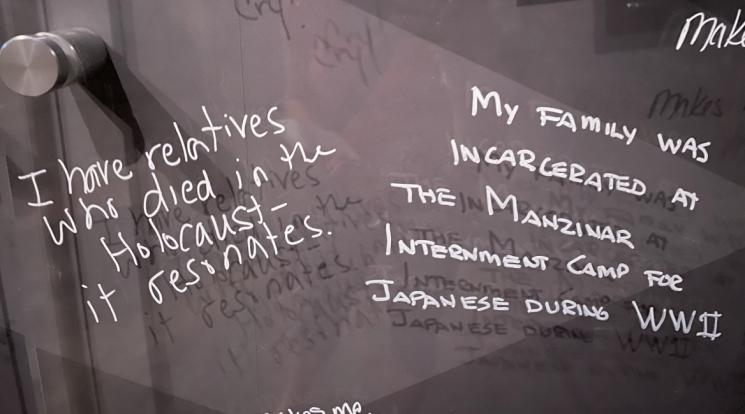 Cry!
I have relatives
who died in the
Holocaust-
it resonates.
Make
My FAMILY WAS
INCARCERATED AT
THE MANZINAR
INTERNMENT CAMP FOR
JAPANESE DURING WWII
me.